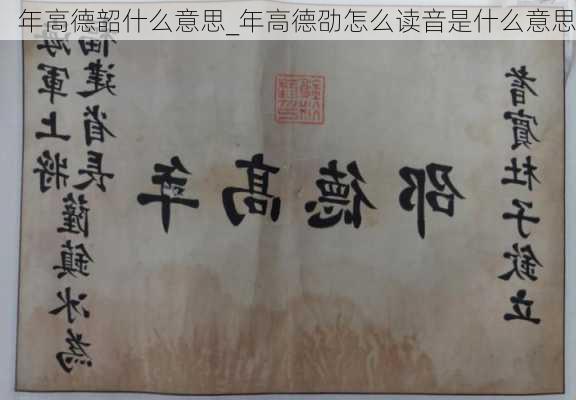 年高德韶什么意思_年高德劭怎么读音是什么意思
海軍上將
福建省長
薩鎮冰為
年高德邵
耆賓杜子欽立